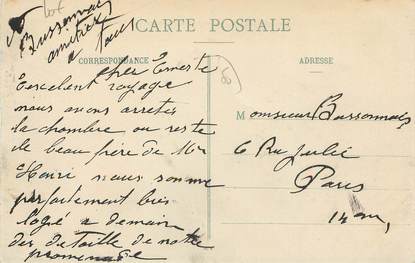 CARTE POSTALE
Bussonnais
amitiez
a tous
CORRESPONDANCE
ADRESSE
cher Erneste
Excelent voyage
nous avons arretés
la chambre ou reste
le beau frère de Mr
Henri nous somme
parfaitement bies
logé a demain
des detaille de notre
promenade
Monsieur Bussonnais
6 Rue Julié
Paris
14 arr,